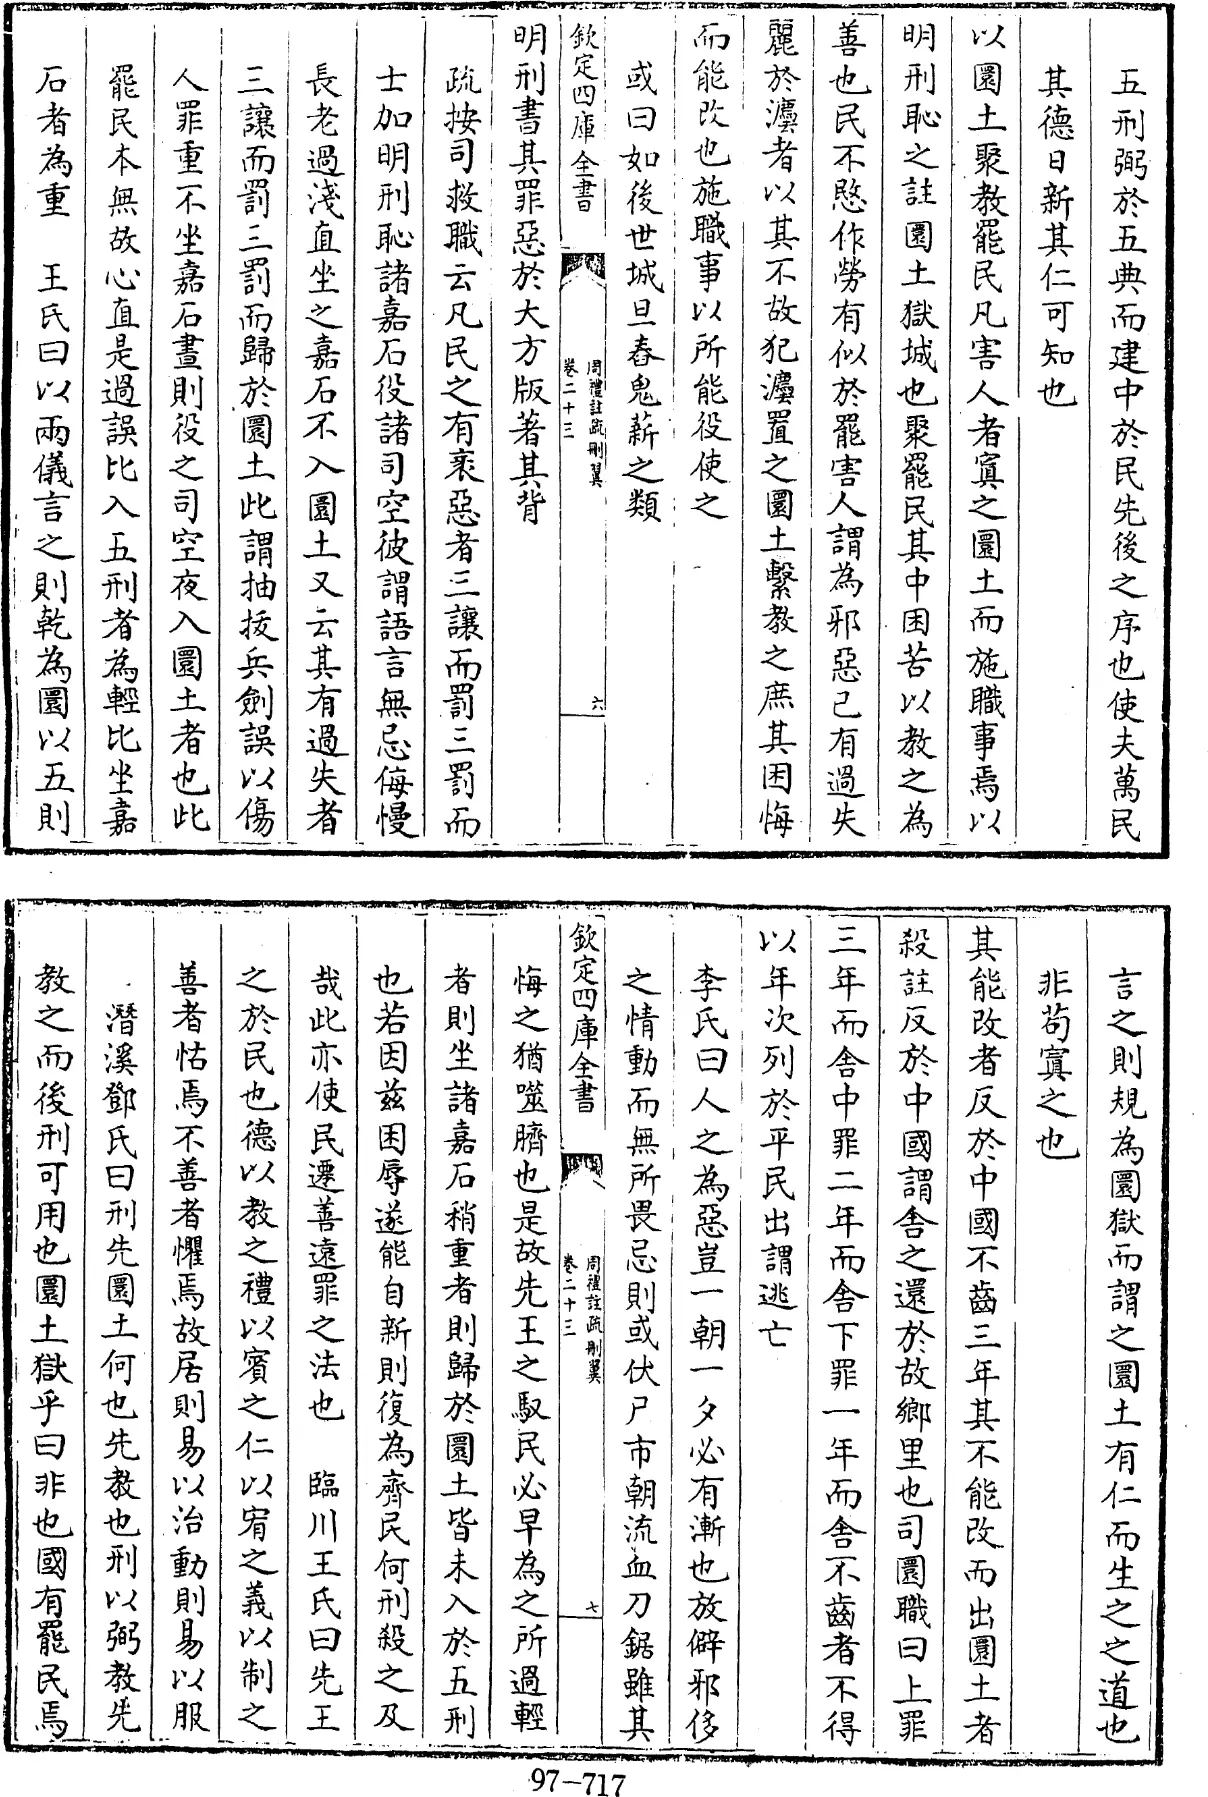 五刑弼於五典而建中於民先後之序也使夫萬民
其德日新其仁可知也
以圜土聚教罷民凡害人者寘之圜土而施職事焉以
明刑恥之註圜土獄城也聚罷民其中困苦以教之為
善也民不愍作勞有似於罷害人謂為邪惡已有過失
麗於灋者以其不故犯灋置之圜土繫教之庶其困悔
而能改也施職事以所能役使之
或曰如後世城旦舂鬼薪之類
欽定四庫全書
周禮註疏刪翼
卷二十三
六
明刑書其罪惡於大方版著其背
疏按司救職云凡民之有衺惡者三讓而罰三罰而
士加明刑恥諸嘉石役諸司空彼謂語言無忌侮慢
長老過淺直坐之嘉石不入圜土又云其有過失者
三讓而罰三罰而歸於圜土此謂抽拔兵劍誤以傷
人罪重不坐嘉石晝則役之司空夜入圜土者也此
罷民本無故心直是過誤比入五刑者為輕比坐嘉
石者為重　王氏曰以兩儀言之則乾為圜以五則
言之則規為圜獄而謂之圜土有仁而生之之道也
非苟寘之也
其能改者反於中國不齒三年其不能改而出圜土者
殺註反於中國謂舍之還於故鄉里也司圜職曰上罪
三年而舍中罪二年而舍下罪一年而舍不齒者不得
以年次列於平民出謂逃亡
李氏曰人之為惡豈一朝一夕必有漸也放僻邪侈
之情動而無所畏忌則或伏尸市朝流血刀鋸雖其
欽定四庫全書
周禮註疏刪翼
卷二十三
七
悔之猶噬臍也是故先王之馭民必早為之所過輕
者則坐諸嘉石稍重者則歸於圜土皆未入於五刑
也若因茲困辱遂能自新則復為齊民何刑殺之及
哉此亦使民遷善遠罪之法也　臨川王氏曰先王
之於民也德以教之禮以賓之仁以宥之義以制之
善者怙焉不善者懼焉故居則易以治動則易以服
潛溪鄧氏曰刑先圜土何也先教也刑以弼教先
教之而後刑可用也圜土獄乎曰非也國有罷民焉
97-717